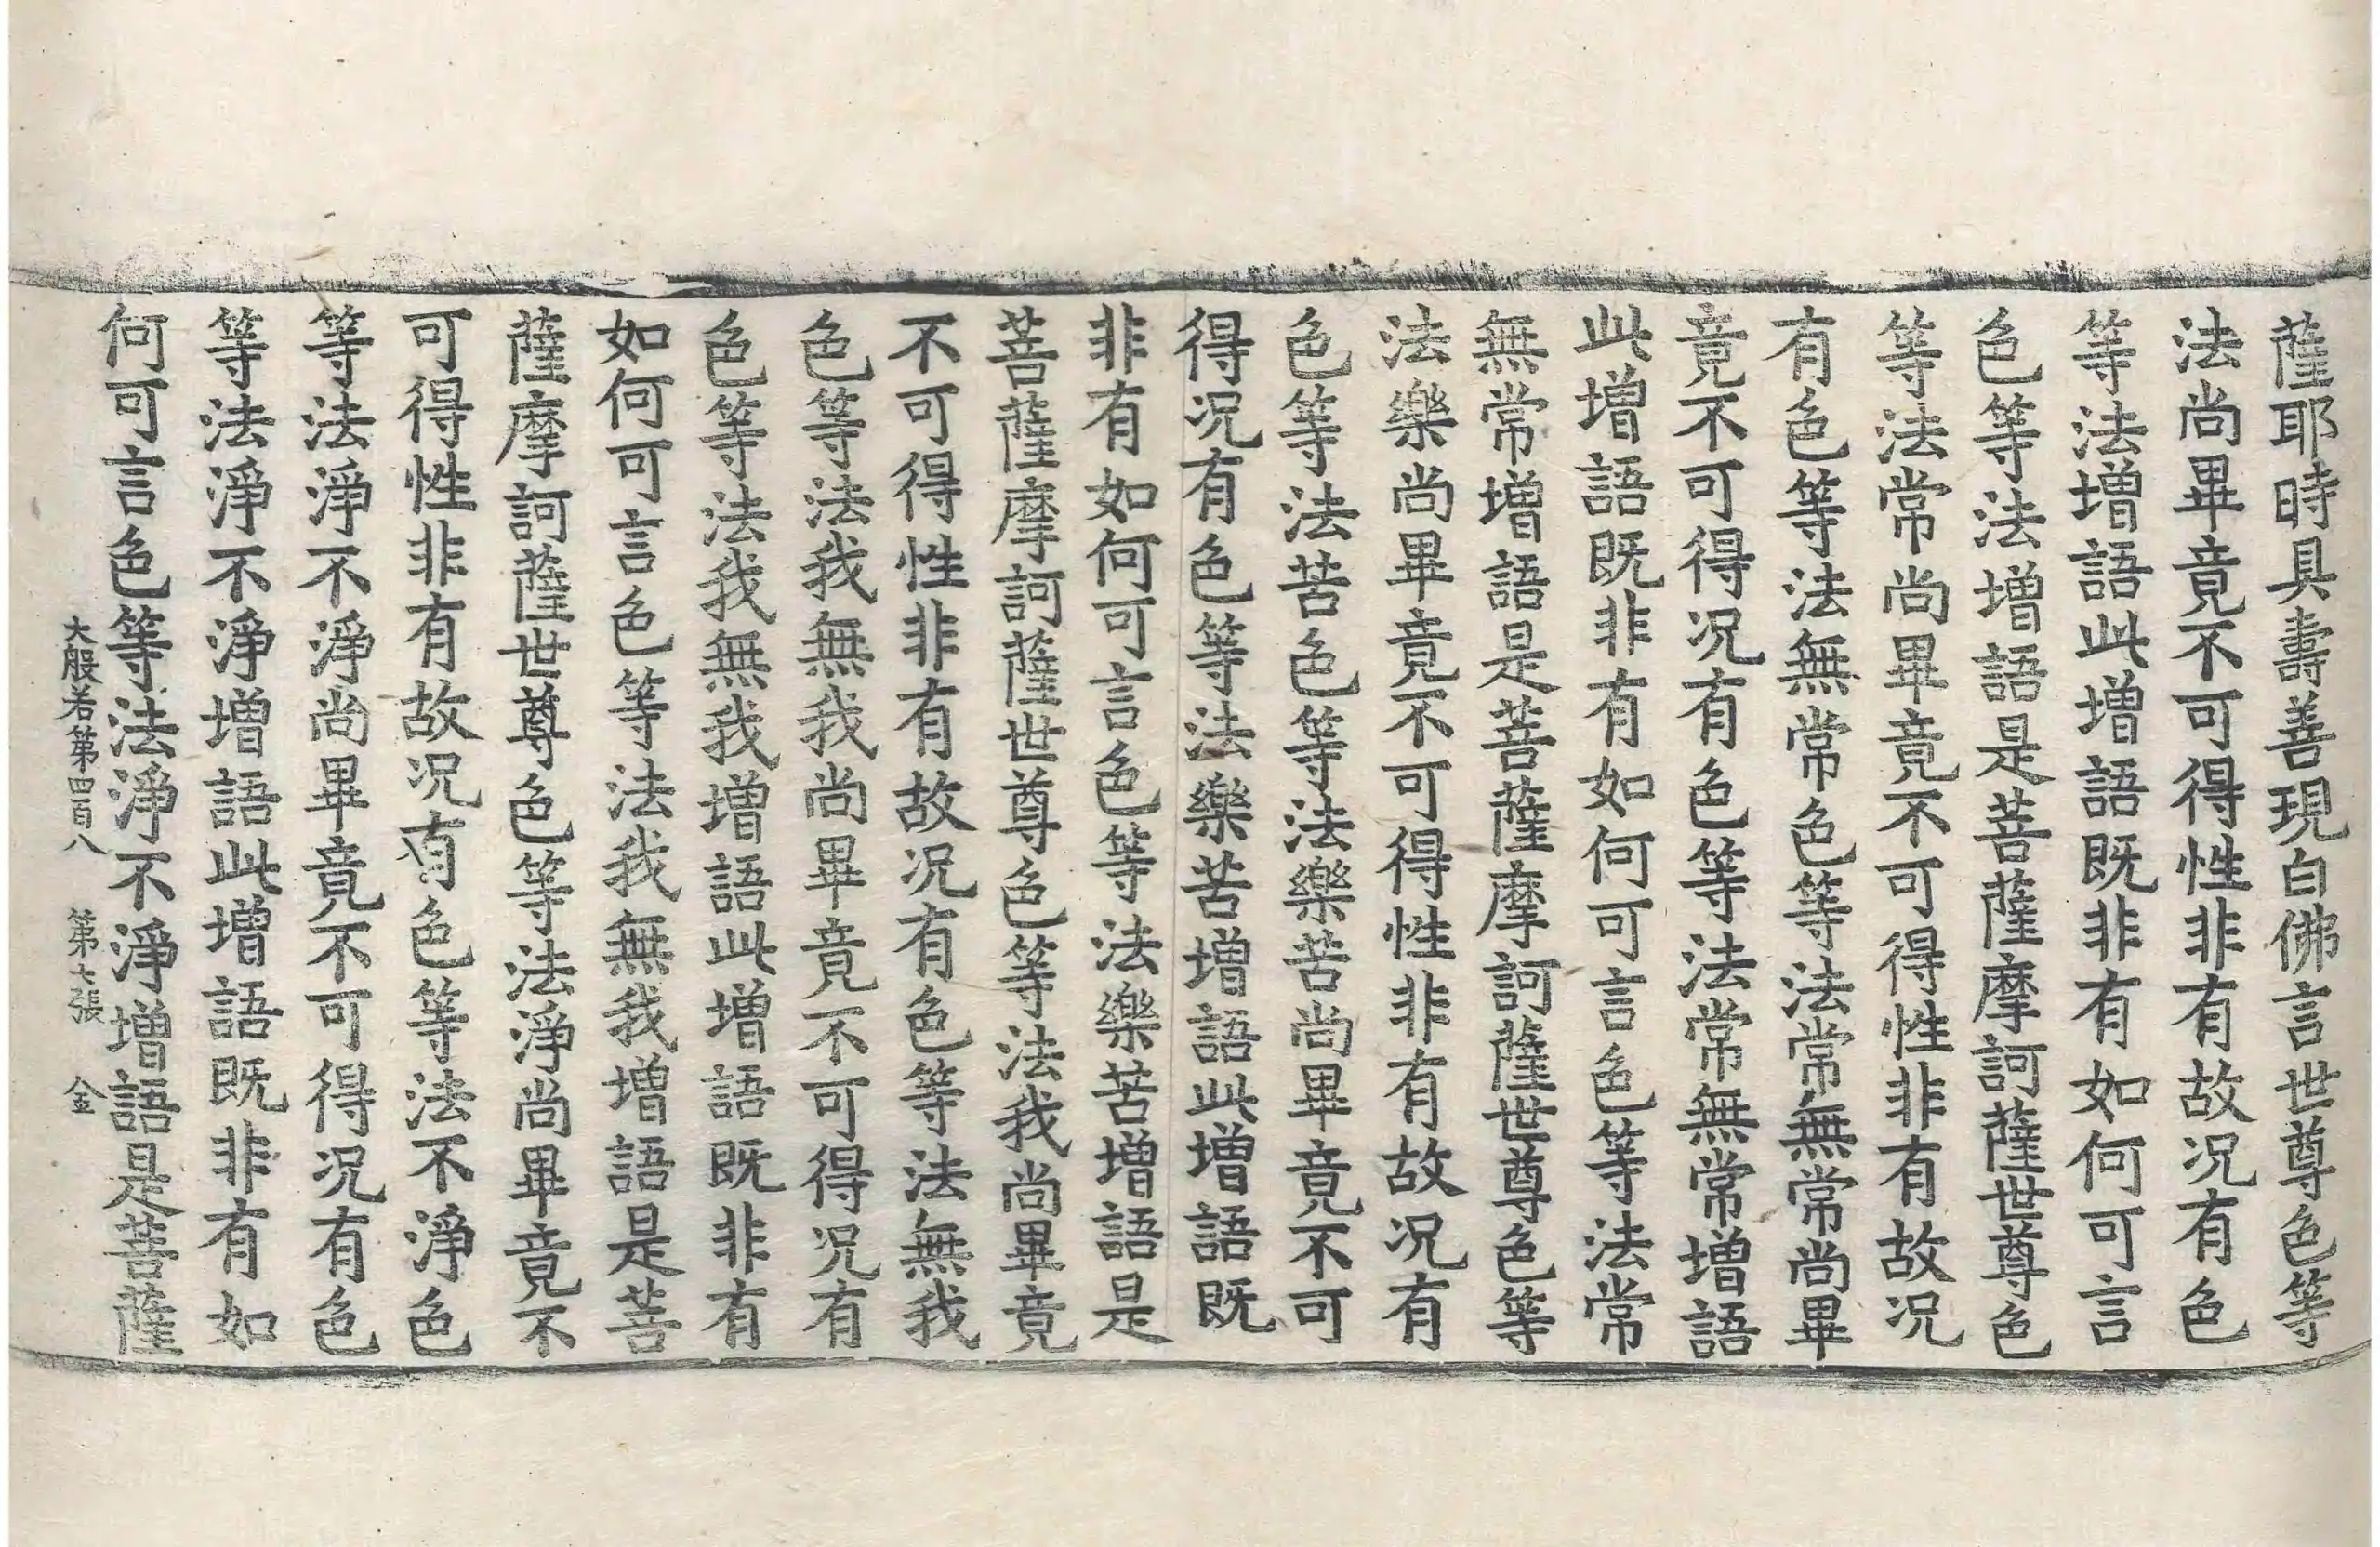 薩耶時具壽善現白佛言世尊色等
法尚畢竟不可得性非有故况有色
等法增語此增語既非有如何可言
色等法增語是菩薩摩訶薩世尊色
等法常尚畢竟不可得性非有故况
有色等法無常色等法常無常尚畢
竟不可得况有色等法常無常增語
此增語既非有如何可言色等法常
無常增語是菩薩摩訶薩世尊色等
法樂尚畢竟不可得性非有故况有
色等法苦色等法樂苦尚畢竟不可
得况有色等法樂苦增語此增語既
非有如何可言色等法樂苦增語是
菩薩摩訶薩世尊色等法我尚畢竟
不可得性非有故况有色等法無我
色等法我無我尚畢竟不可得况有
色等法我無我增語此增語既非有
如何可言色等法我無我增語是菩
薩摩訶薩世尊色等法淨尚畢竟不
可得性非有故况有色等法不淨色
等法淨不淨尚畢竟不可得况有色
等法淨不淨增語此增語既非有如
何可言色等法淨不淨增語是菩薩
大般若第四百八 第六張 金